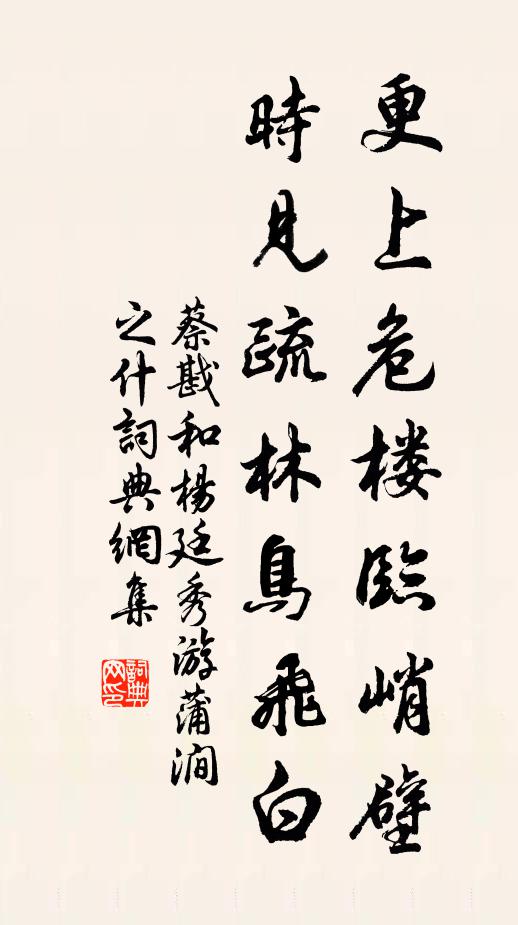 更上危楼臨峭壁
時見疏林鳥飛白
蔡戡和楊廷秀游蒲澗
之什詞典網集
詞典网印